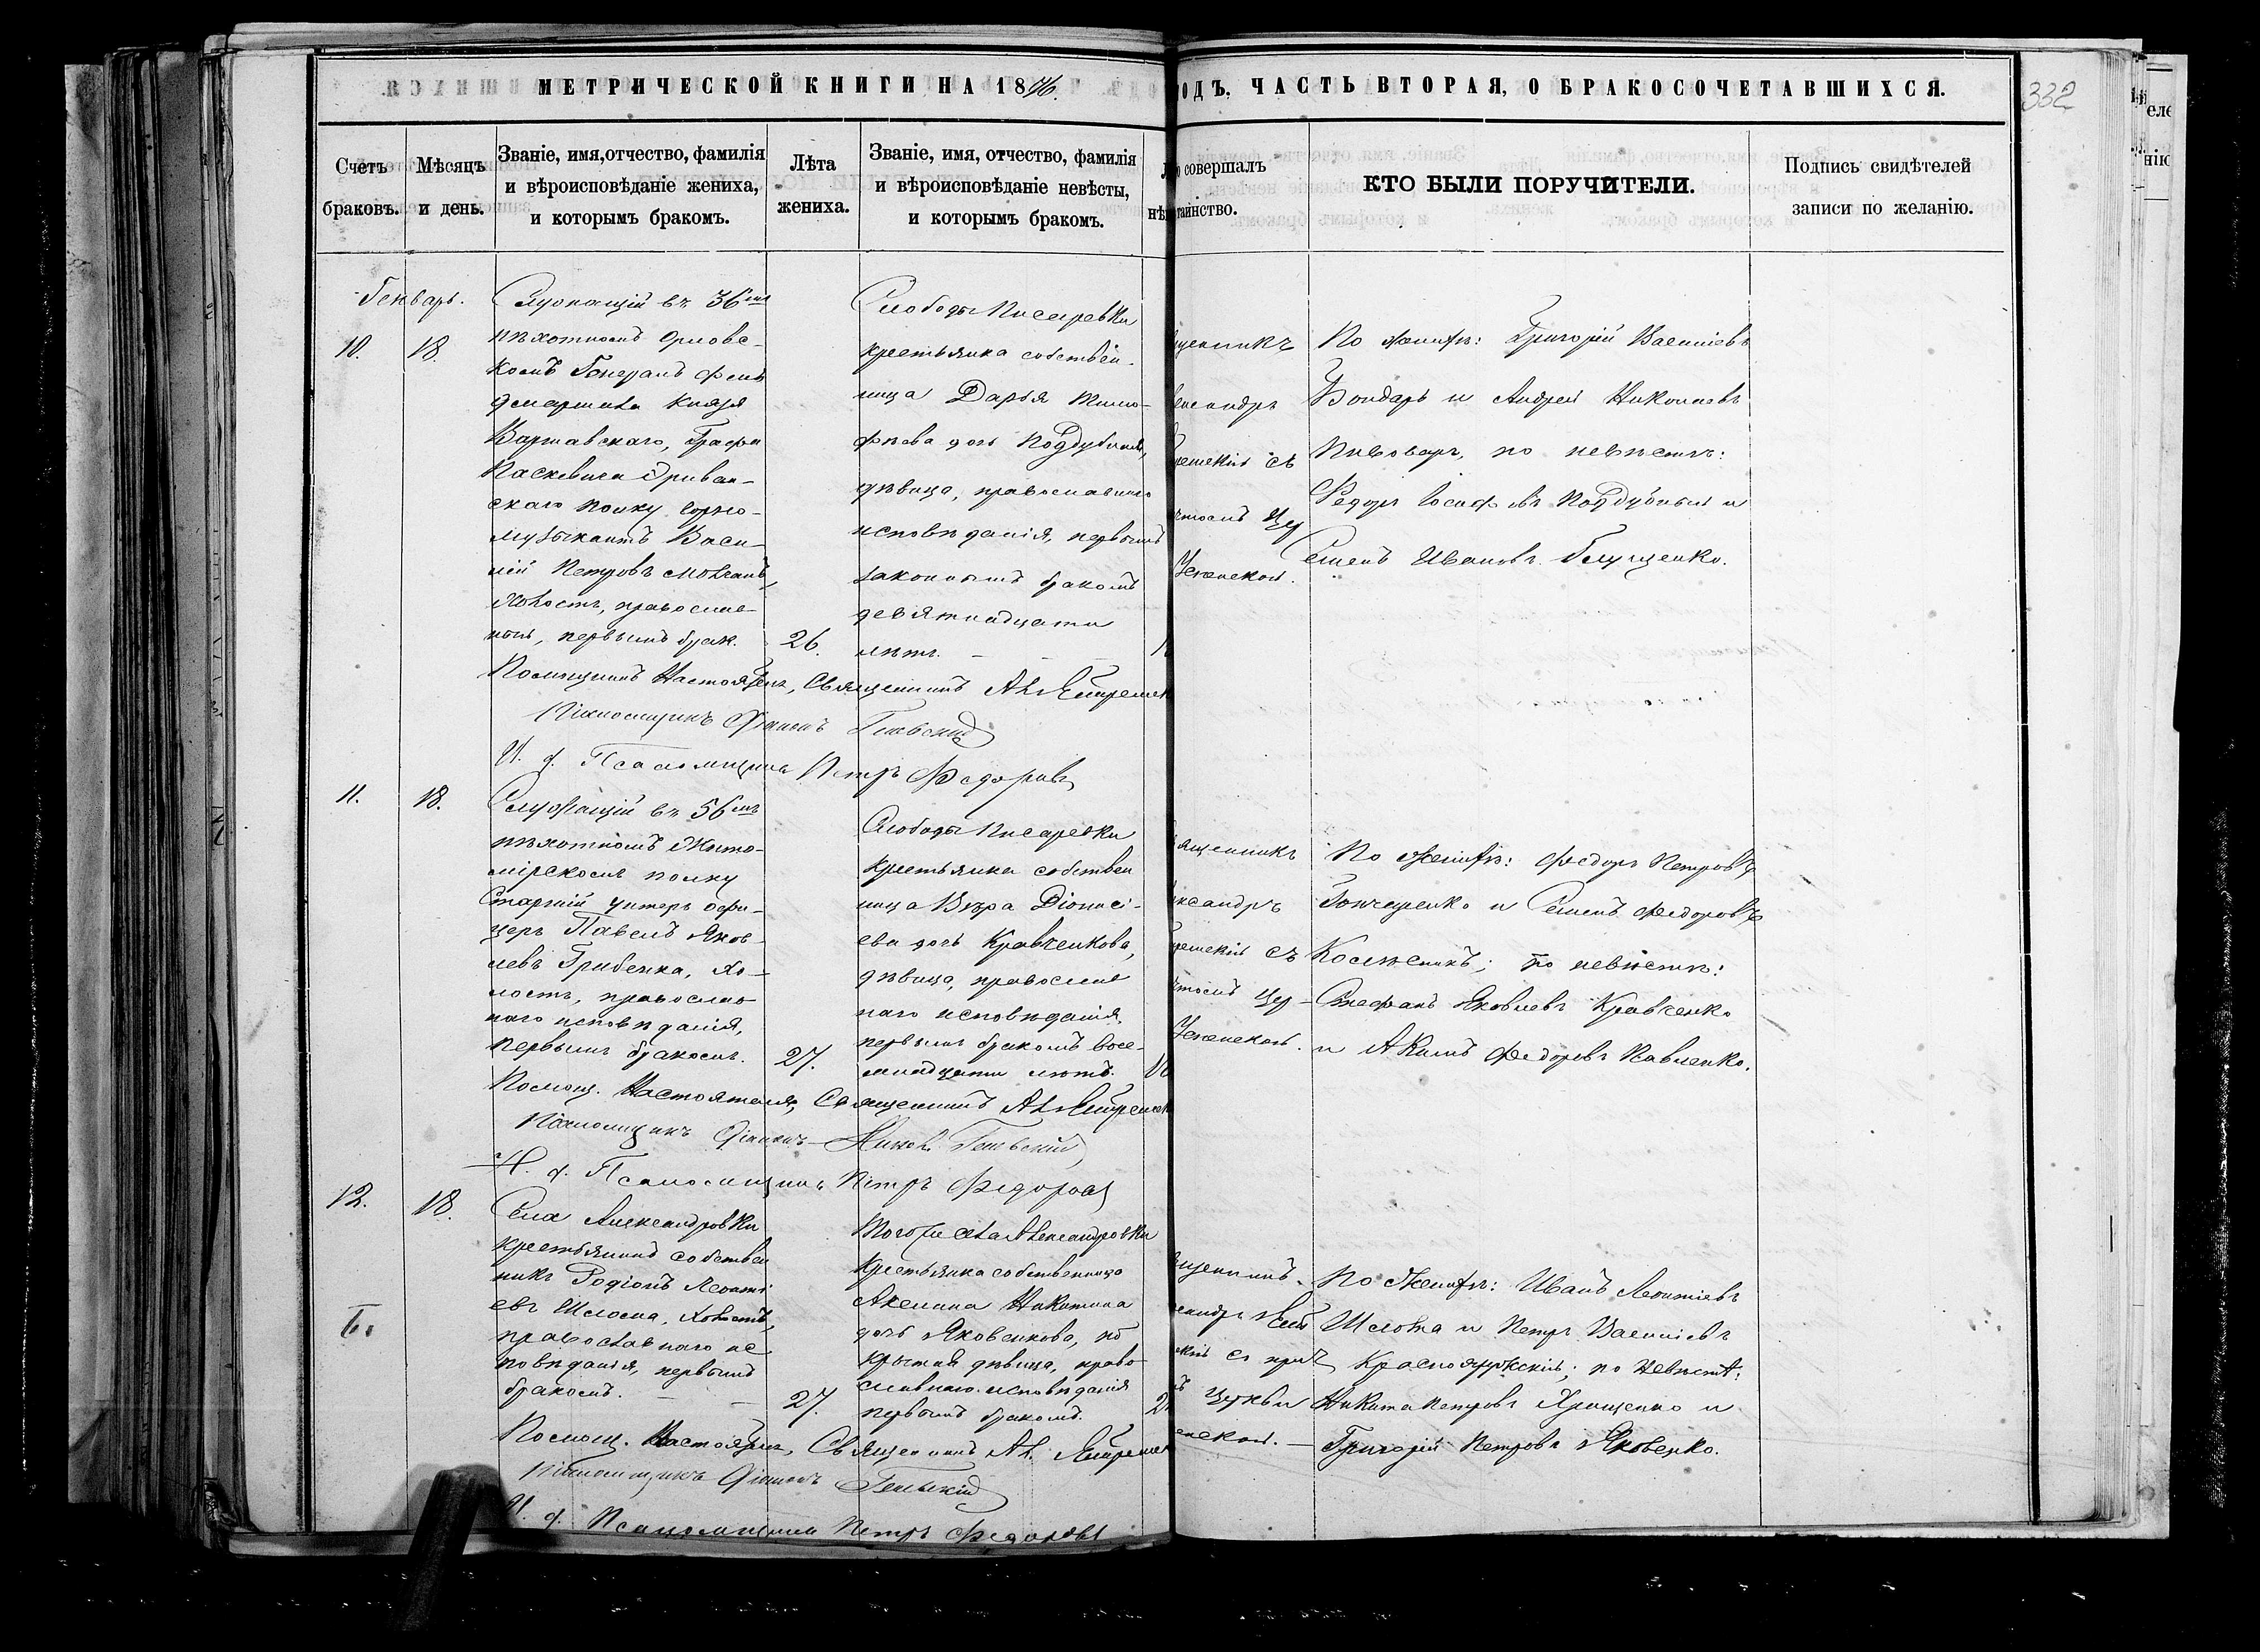 МЕТРИЧЕСКОЙ КНИГИ НА 1876.
ОДЪ, ЧАСТЬ ВТОРАЯ, О БРАКОСОЧЕТАВШИХСЯ.
332
Счетъ
браковъ.
Мѣсяцъ
и день.
Званіе, имя, отчество, фамилія
и вѣроисповѣданіе жениха,
и которымъ бракомъ.
Лѣта
жениха.
Званіе, имя, отчество, фамилія
и вѣроисповѣданіе невѣсты,
и которымъ бракомъ.
о совершалъ
таинство.
КТО БЫЛИ ПОРУЧИТЕЛИ.
Подпись свидѣтелей
записи по желанію.
Генварь.
10.
18.
Служащій въ 36мъ
пѣхотномъ Орловс-
комъ Генералъ Фель
дмаршала Князя
Варшавскаго, Графа
Паскевича Эриван-
скаго полку горно-
музыкантъ Васи-
лій Петровъ Молчанъ,
холостъ, православ-
ный, первымъ брак.
26.
Слободы Писаревки
крестьянка собствен-
ница Дарья Тимо-
фѣева дочь Поддубная,
дѣвица, православнаго
исповѣданія, первымъ
законнымъ бракомъ
девятнадцати
лѣтъ.
щенникъ
ександръ
ремскій съ
чтомъ Це
Успенской.
По женихѣ: Григорій Василіевъ
Бондарь и Андрей Николаевъ
Пивоваръ, по невѣстѣ:
Федоръ Іосифовъ Поддубный и
Семенъ Ивановъ Глущенко.
Помощникъ Настоятеля, Священникъ Ал.
Псаломщикъ
И. д. Псаломщика Петръ Федоровъ
11.
18.
Служащій въ 56мъ
пѣхотномъ Жито-
мірскомъ полку
Старшій унтеръ офи-
церъ Павелъ Яков-
левъ Грибенка, хо-
лостъ, православ-
наго исповѣданія,
первымъ бракомъ.
27.
Слободы Писаревки
крестьянка собствен
ница Вѣра Діонисі-
ева дочь Кравченкова,
дѣвица, православ
наго исповѣданія,
первымъ бракомъ восе-
мнадцати лѣтъ.
18
ященникъ
ександръ
ремскій съ
чтомъ Це-
Успенской.
По женихѣ: Федоръ Петровъ
Гончаренко и Семенъ Федоровъ
Колесникъ; по невѣстѣ:
Стефанъ Яковлевъ Кравченко
и Акимъ Федоровъ Павленко.
Помощ. Настоятеля, Священникъ Ал.
Псаломщикъ
И. д. Псаломщика Петръ Федоровъ
12.
18.
Села Александровки
крестьянинъ собствен
никъ Родіонъ Леонті
евъ Шелома, холостъ,
православнаго ис
повѣданія, первымъ
бракомъ.
27.
Того же села Александровки
крестьянка собственница
Акелина Никитина
дочь Яковенкова, по
крытая дѣвица, право
славнаго исповѣданія
первымъ бракомъ.
щенникъ
скій съ прич
Церкви
енской.
По женихѣ: Иванъ Леонтіевъ
Шелома и Петръ Василіевъ
Краснояружскій; по невѣстѣ:
Никита Петровъ Ярощенко и
Григорій Петровъ Яковенко.
Помощ. Настоятеля, Священникъ Ал.
Псаломщикъ
И. д. Псаломщика Петръ Федоровъ